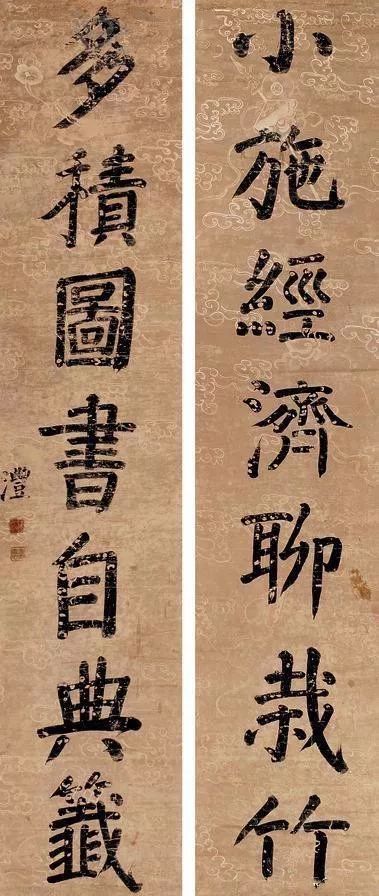 小施經濟聊栽竹
多積圖書自典籤
澧